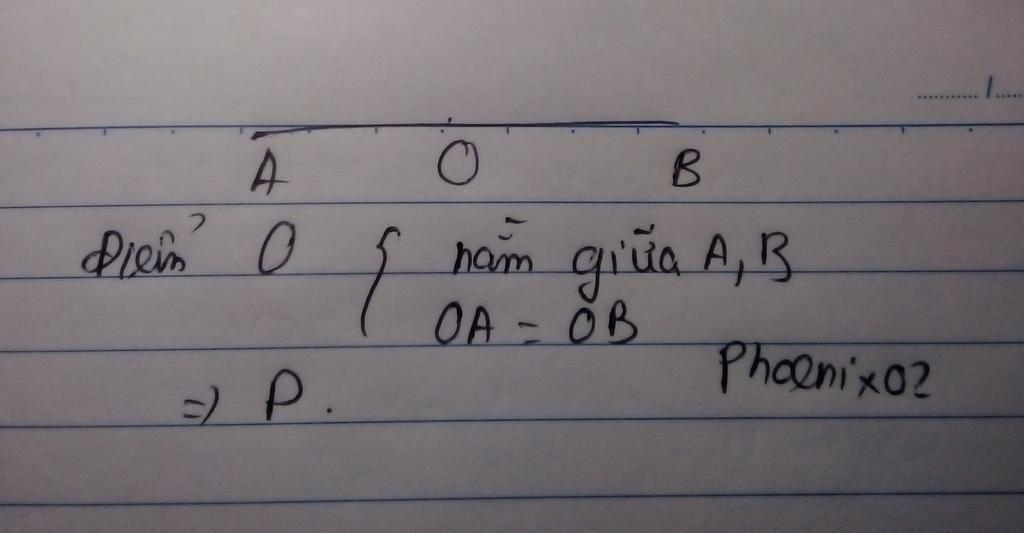 A O B
Điểm O { nằm giữa A, B
OA = OB
=> D.
Phoenix02